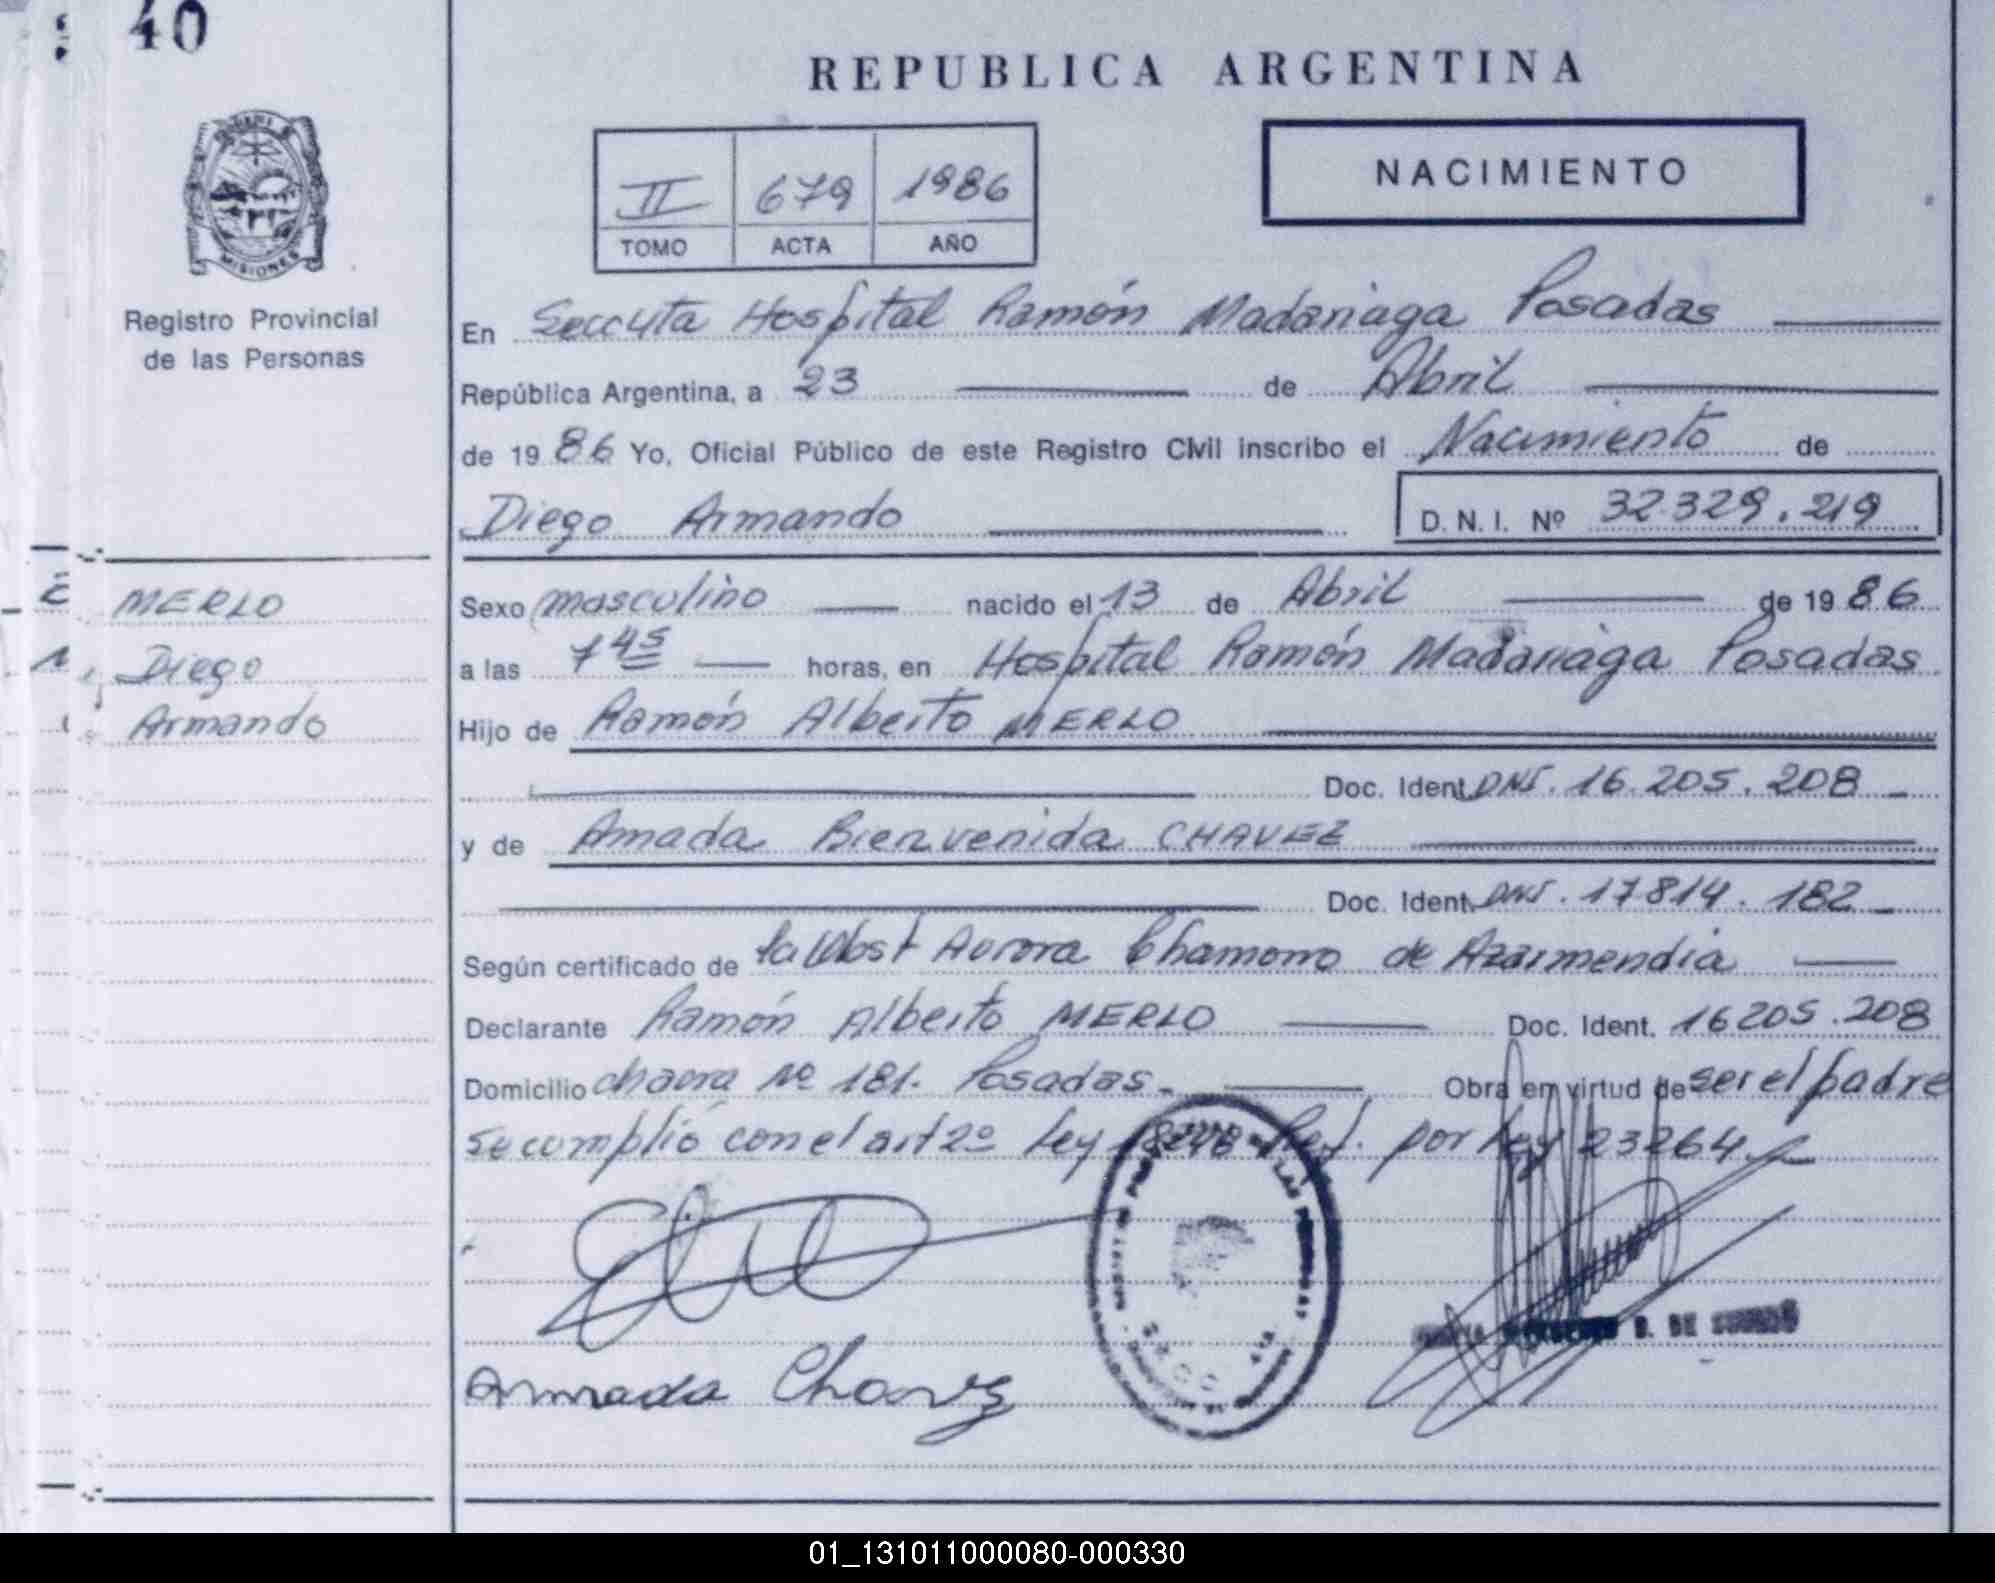 40
REPUBLICA ARGENTINA
NACIMIENTO
II 679 1986
TOMO ACTA AÑO
MISIONES
Registro Provincial
de las Personas
En Seccyta Hospital Ramón Madariaga Posadas
República Argentina, a 23 de Abril
de 1986 Yo, Oficial Público de este Registro Civil inscribo el Nacimiento de
Diego Armando D. N. I. Nº 32.329.219
MERLO
Diego
Armando
Sexo masculino nacido el 13 de Abril de 1986
a las 7 45 horas, en Hospital Ramón Madariaga Posadas
Hijo de Ramón Alberto MERLO
Doc. Ident. DNI. 16.205.208
y de Amada Bienvenida CHAVEZ
Doc. Ident. DNI. 17814.182
Según certificado de Aurora Chamorro de Azarmendia
Declarante Ramón Alberto MERLO Doc. Ident. 16205.208
Domicilio chacra Nº 181. Posadas Obra en virtud de ser el padre
se cumplió con el art 2º Ley 18248 Ref. por Ley 23264
Amada Chavez
D. DE
01_131011000080-000330